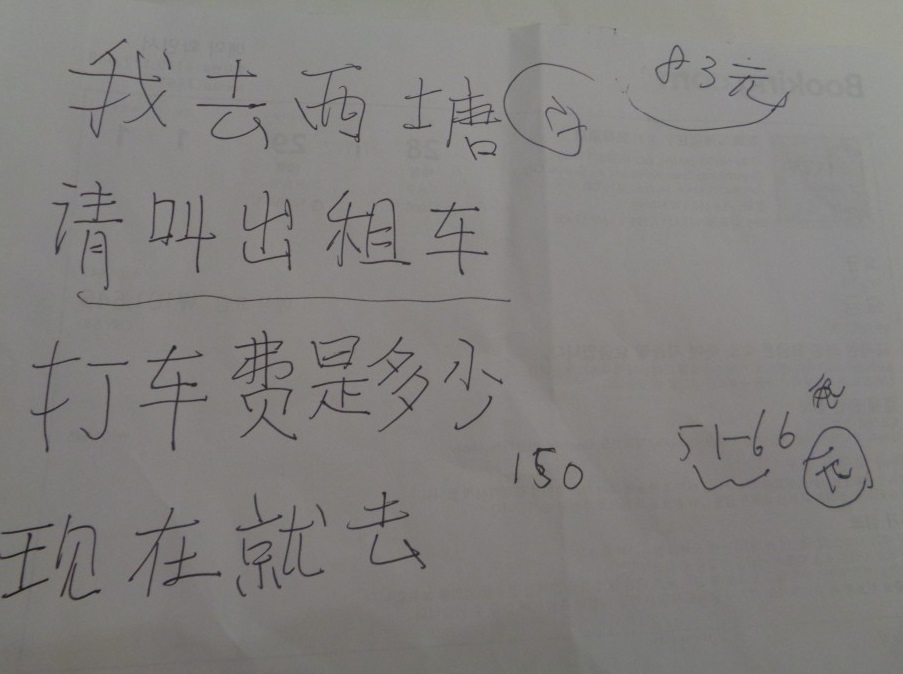 我去西塘 83元
请叫出租车
打车费是多少
150 51-66 元
现在就去